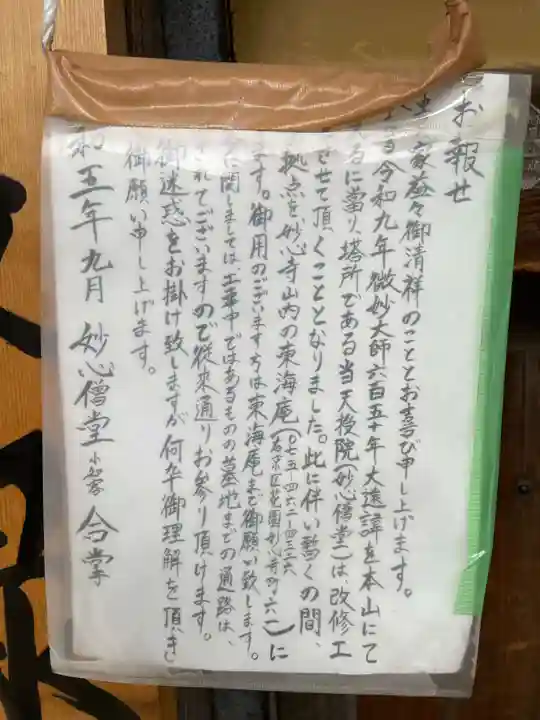 お報せ
家益々御清祥のこととお喜び申し上げます。
る令和九年微妙大師六百五十年大遠諱を本山にて
るに當り、塔所である当天授院(妙心僧堂)は、改修工
させて頂くこととなりました。此に伴い暫くの間、
拠点を、妙心寺山内の東海庵(右京区花園妙心寺町六一)に
〇七五-四六二-四三二六
ます。御用のございます方は東海庵まで御願い致します。
に関しましては、工事中ではあるものの墓地までの通路は、
されてございますので従来通りお参り頂けます。
御迷惑をお掛け致しますが何卒御理解を頂き
御願い申し上げます。
和五年九月 妙心僧堂 合掌